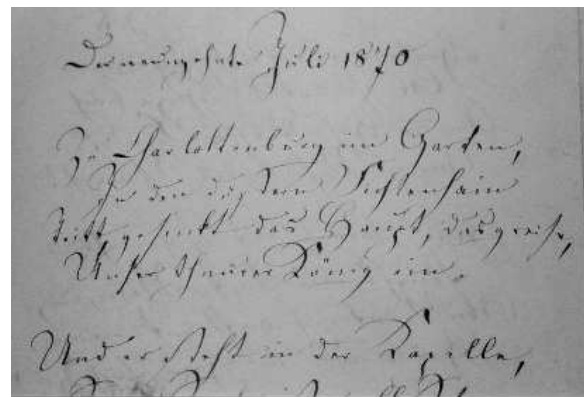 Der neunzehnte Juli 1870
Zu Charlottenburg im Garten,
In den düstern Fichtenhain
Tritt gesenkt das Haupt, das greise,
Unser theurer König ein.
Und er steht in der Kapelle,